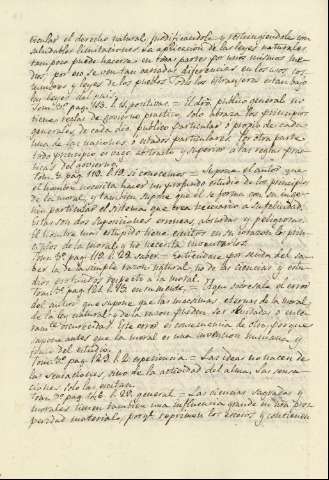 cular el derecho natural, modificandole y restringiendole con
saludables limitaciones. La aplicacion de las leyes naturales
tampoco puede hacerse en todas partes por unos mismos me-
dios; por eso se ven variadas diferencias en los usos, cos-
tumbres y leyes de los pueblos. Todos los estranjeros estan bajo
las leyes del pais.
Tomo 2º pag. 113. l. 15. positivas = El dro publico general no
tiene reglas de govierno practico, solo abraza los principios
generales de cada dro publico particular o propio de cada
una de las naciones o estados particulares. Por otra parte
todo principio es uno abstracto y superior a las reglas prac-
ticas del govierno.
Tomo 2º pag. 110. l. 12. si conocemos = Supone el autor que
el hombre necesita hacer un profundo estudio de los principios
de la moral, y tambien supone que el se forma con su interes
particular el sistema que cree necesario a su felicidad.
Estas son dos suposiciones erroneas, absurdas y peligrosas.
El hombre mas estupido tiene escritos en su corazon los prin-
cipios de la moral y no necesita inventarlos.
Tomo 2º pag. 118 l. 22. saber = entiendase por senda del sa-
ber la de la simple razon natural, no de las ciencias y estu-
dios profundos respecto a la moral.
Tomo 2º pag. 121 l. 13 en su mente = Aqui sobresale el error
del autor que supone que las maximas eternas de la moral,
de la ley natural y de la razon pueden ser olvidadas o ente-
ramte oscurecidas. Este error es consecuencia de otro porque
supone antes que la moral es una invencion humana y
fruto del estudio.
Tomo 2º pag. 123. l. 2. esperiencia = Las ideas no nacen de
las sensaciones sino de la actividad del alma. Las sensa-
ciones solo las escitan.
Tomo 2º pag. 146. l. 29. general = Las ciencias sagradas y
morales tienen tambien una influencia grande en una pros-
peridad material, porqe reprimen los excesos y contienen